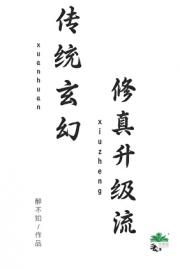 传统玄幻
xuanhuan
修真升级流
xiuzheng
醉不知/作品